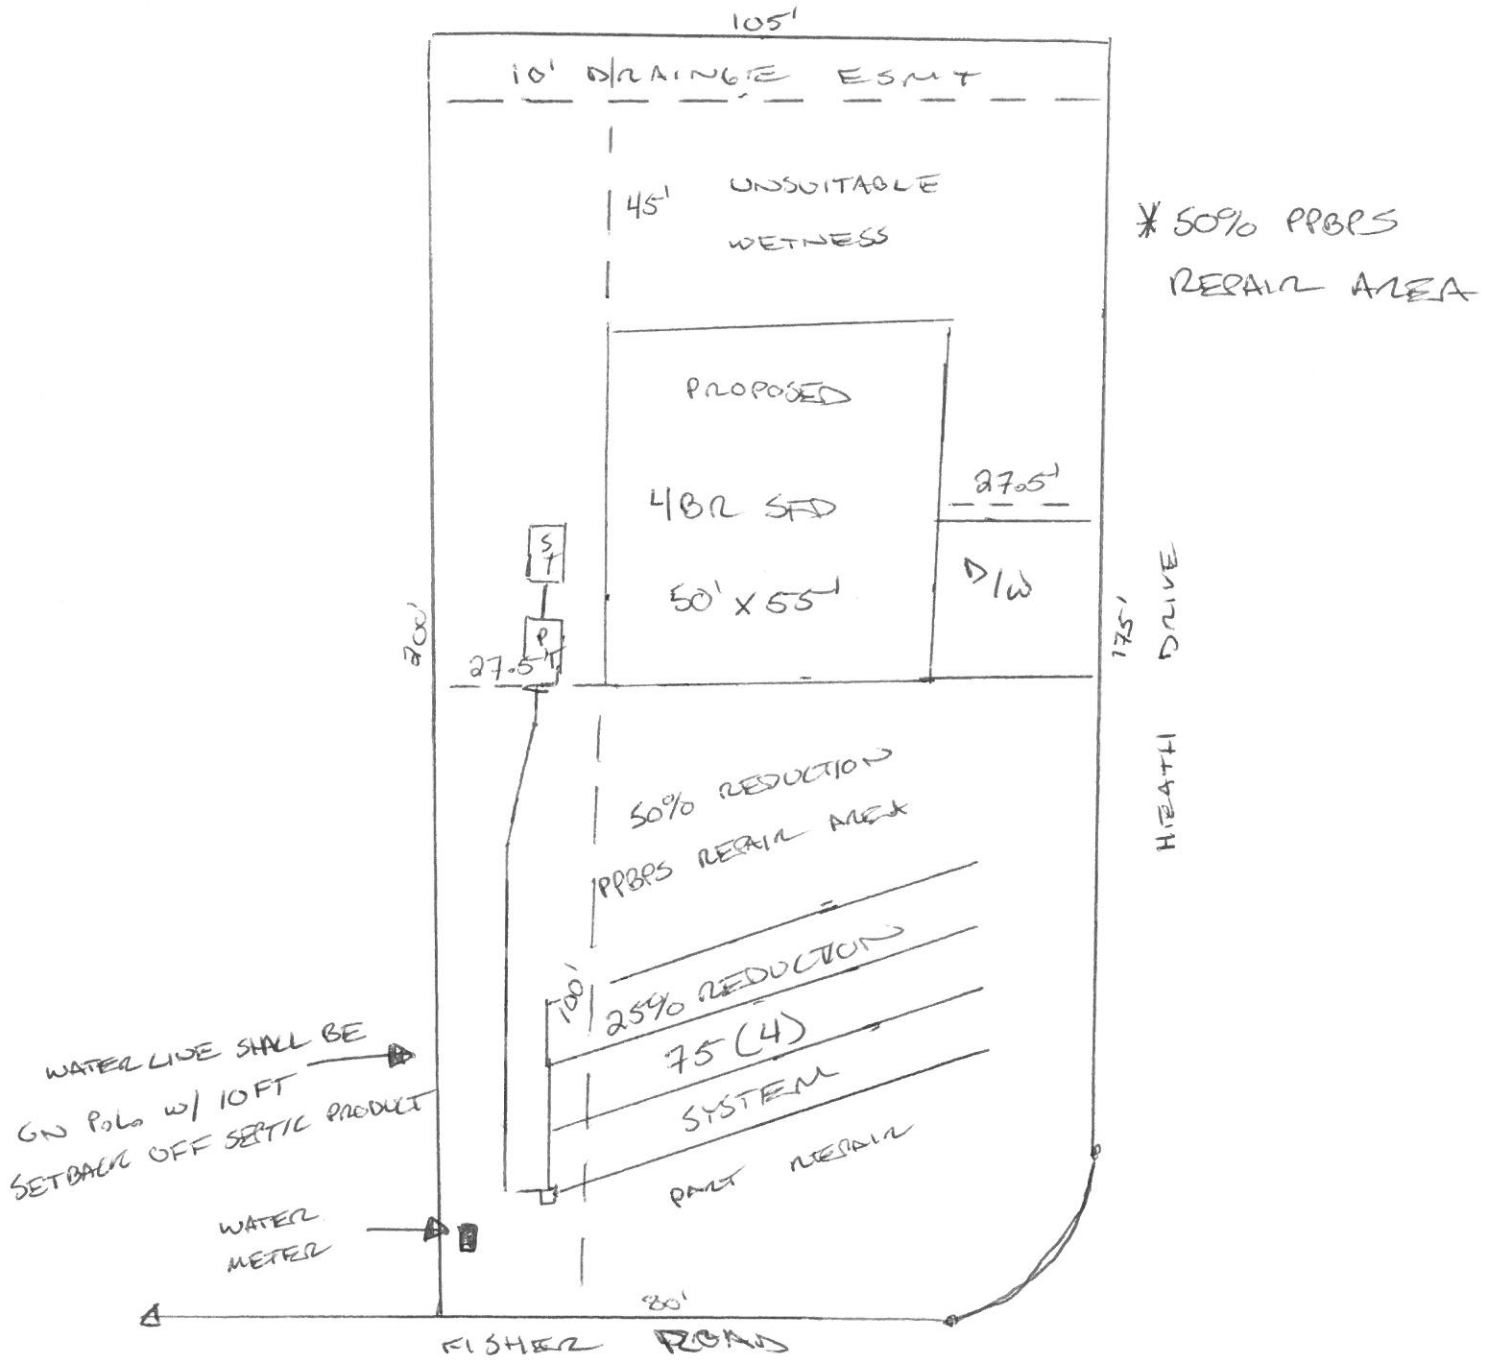 105'
10' DRAINGE ESMT
45'
UNSUITABLE
WETNESS
* 50% PPBPS
REPAIR AREA
PROPOSED
4BR SFD
50' x 55'
27.5'
D/W
ST
PT
27.5'
200'
175'
HEATH DRIVE
50% REDUCTION
PPBPS REPAIR AREA
100'
25% REDUCTION
75 (4)
SYSTEM
PART REPAIR
WATERLINE SHALL BE
ON W/ 10FT
SETBACK OFF SEPTIC PRODUCT
WATER
METER
80'
FISHER ROAD